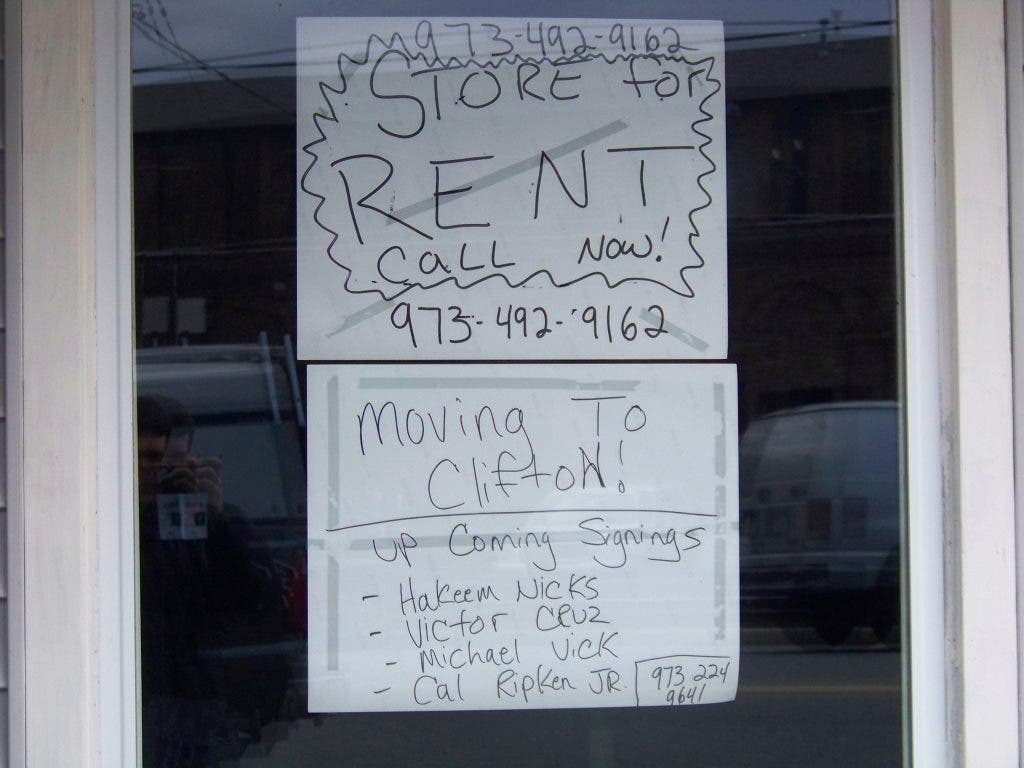 973-492-9162
STORE for
RENT
CaLL Now!
973-492-9162
Moving To
CliftoN!
up Coming Signings
- Hakeem Nicks
- Victor Cruz
- Michael Vick
- Cal Ripken JR.
973 224
9641